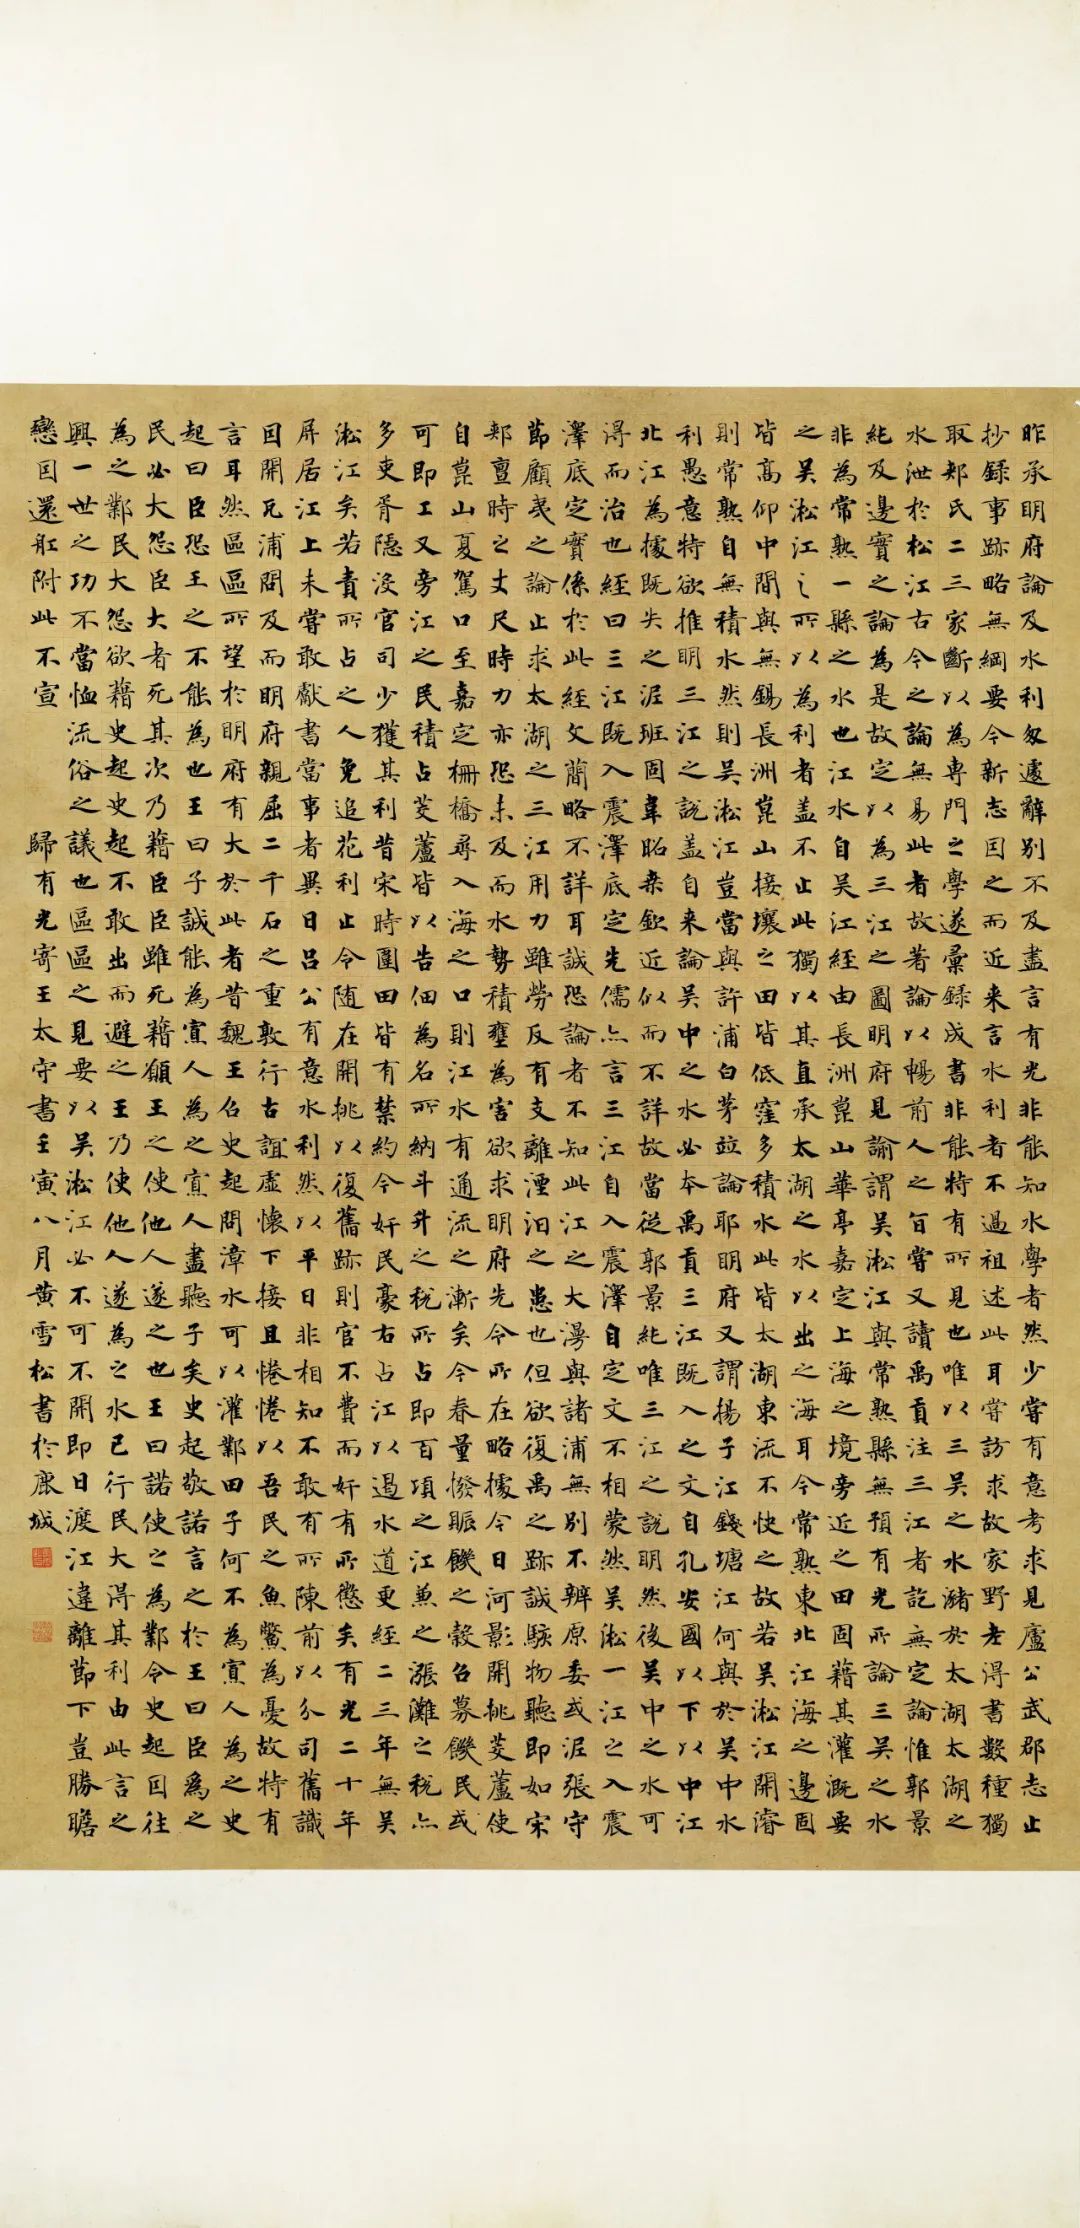 昨承明府論及水利匆遽辭別不及盡言有光非能知水學者然少嘗有意考求見盧公武郡志止
抄録事跡略無綱要今新志因之而近来言水利者不過祖述此耳嘗訪求故家野老得書數種獨
取郟氏二三家斷以為專門之學遂彙録成書非能特有所見也唯以三吴之水瀦於太湖太湖之
水泄於松江古今之論無易此者故著論以暢前人之旨嘗又讀禹貢注三江者訖無定論惟郭景
純及邊實之論為是故定以為三江之圖明府見諭謂吴淞江與常熟縣無預有光所論三吴之水
非為常熟一縣之水也江水自吴江經由長洲崑山華亭嘉定上海之境旁近之田固藉其灌溉要
之吴淞江之所以為利者盖不止此獨以其直承太湖之水以出之海耳今常熟東北江海之邊固
皆高仰中間與無錫長洲崑山接壤之田皆低窪多積水此皆太湖東流不快之故若吴淞江開濬
則常熟自無積水然則吴淞江豈當與許浦白茅竝論耶明府又謂揚子江錢塘江何與於吴中水
利愚意特欲推明三江之說盖自来論吴中之水必本禹貢三江既入之文自孔安國以下以中江
北江為據既失之泥班固韋昭桒欽近似而不詳故當從郭景純唯三江之說明然後吴中之水可
得而治也經曰三江既入震澤底定先儒亦言三江自入震澤自定文不相蒙然吴淞一江之入震
澤底定實係於此經文簡略不詳耳誠恐論者不知此江之大漫與諸浦無別不辨原委或泥張守
節顧夷之論止求太湖之三江用力雖勞反有支離湮汩之患也但欲復禹之跡誠駭物聽即如宋
郟亶時之丈尺時力亦恐未及而水勢積壅為害欲求明府先令所在略據今日河影開挑茭蘆使
自崑山夏駕口至嘉定柵橋尋入海之口則江水有通流之漸矣今春量撥賑饑之榖召募饑民或
可即工又旁江之民積占茭蘆皆以告佃為名所納斗升之稅所占即百頃之江兼之漲灘之稅亦
多吏胥隱没官司少獲其利昔宋時圍田皆有禁約今奸民豪右占江以遏水道更經二三年無吴
淞江矣若責所占之人免追花利止令随在開挑以復舊跡則官不費而奸有所懲矣有光二十年
屏居江上未嘗敢獻書當事者異日吕公有意水利然以平日非相知不敢有所陳前以分司舊識
因開瓦浦問及而明府親屈二千石之重敦行古誼虛懷下接且惓惓以吾民之魚鱉為憂故特有
言耳然區區所望於明府有大於此者昔魏王召史起問漳水可以灌鄴田子何不為寡人為之史
起曰臣恐王之不能為也王曰子誠能為寡人為之寡人盡聽子矣史起敬諾言之於王曰臣為之
民必大怨臣大者死其次乃藉臣臣雖死藉願王之使他人遂之也王曰諾使之為鄴令史起因往
為之鄴民大怨欲藉史起史起不敢出而避之王乃使他人遂為之水已行民大得其利由此言之
興一世之功不當恤流俗之議也區區之見要以吴淞江必不可不開即日渡江違離節下豈勝瞻
戀因還舡附此不宣 歸有光寄王太守書壬寅八月黄雪松書於鹿城